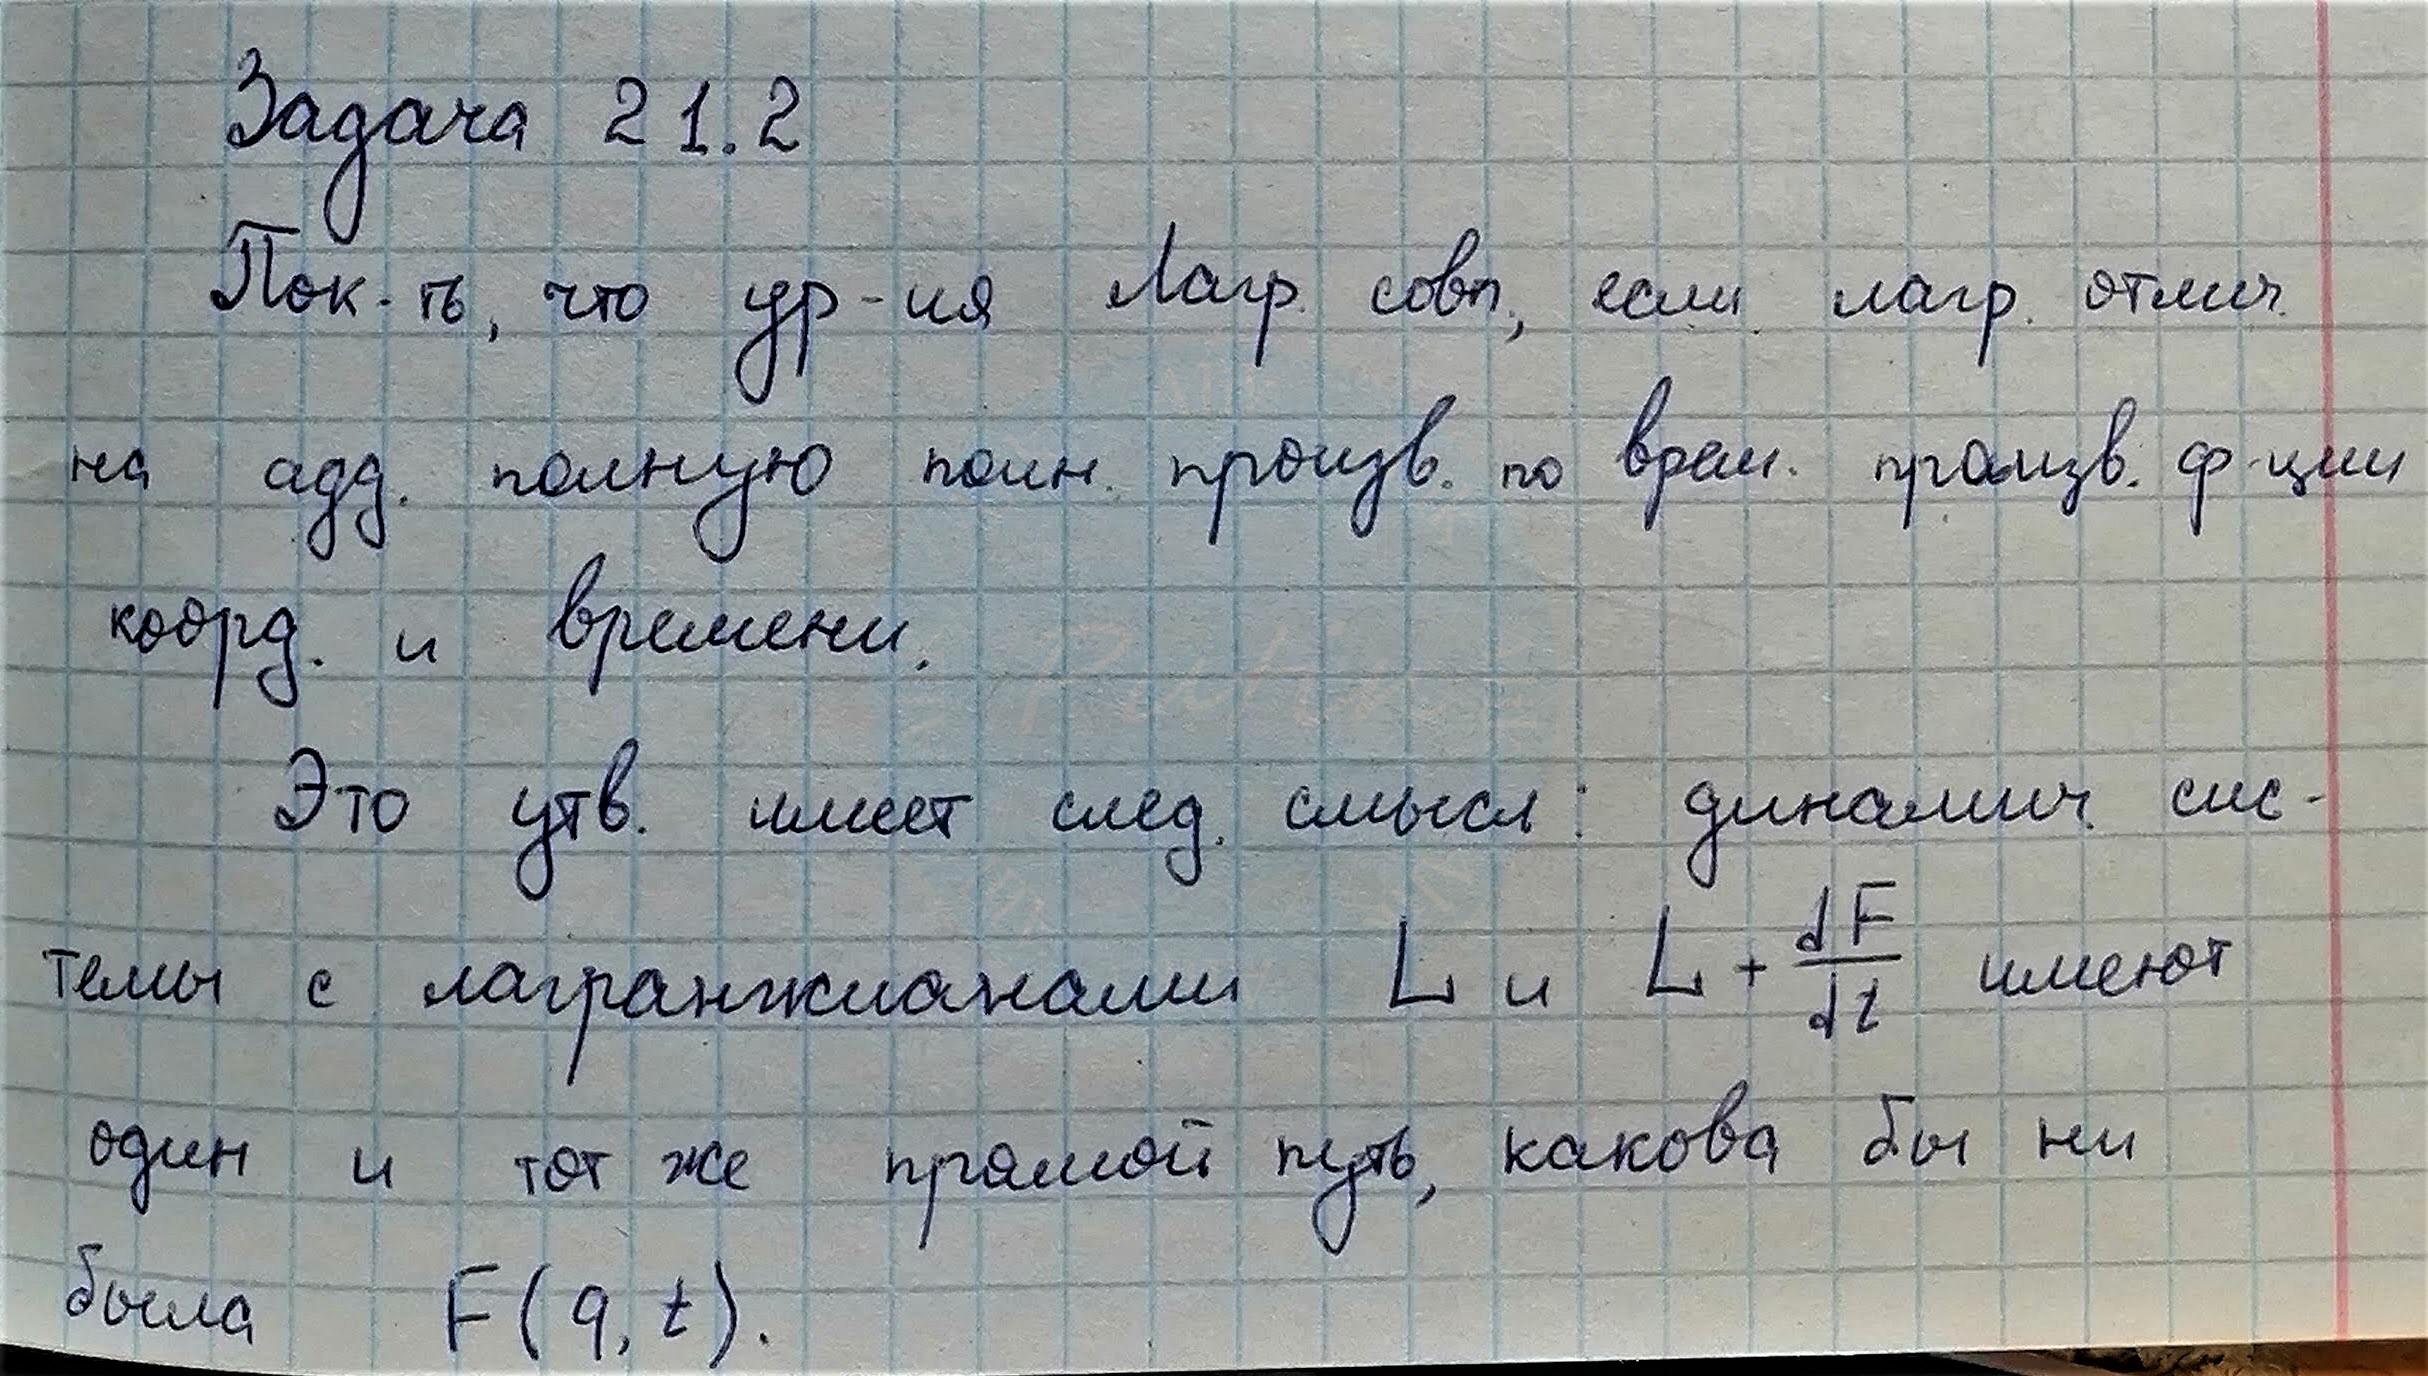 Задача 21.2
Пок-ть, что ур-ия Лагр. совп., если лагр. отлич.
на адд. полную полн. произв. по врем. произв. ф-ции
коорд. и времени.
Это утв. имеет след. смысл: динамич. сис-
темы с лагранжианами L и L + dF/dt имеют
один и тот же прямой путь, какова бы ни
была F(q, t).